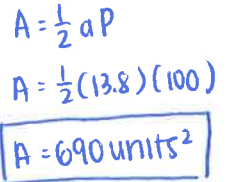 A = 1/2 aP
A = 1/2 (13.8)(100)
A = 690 units²